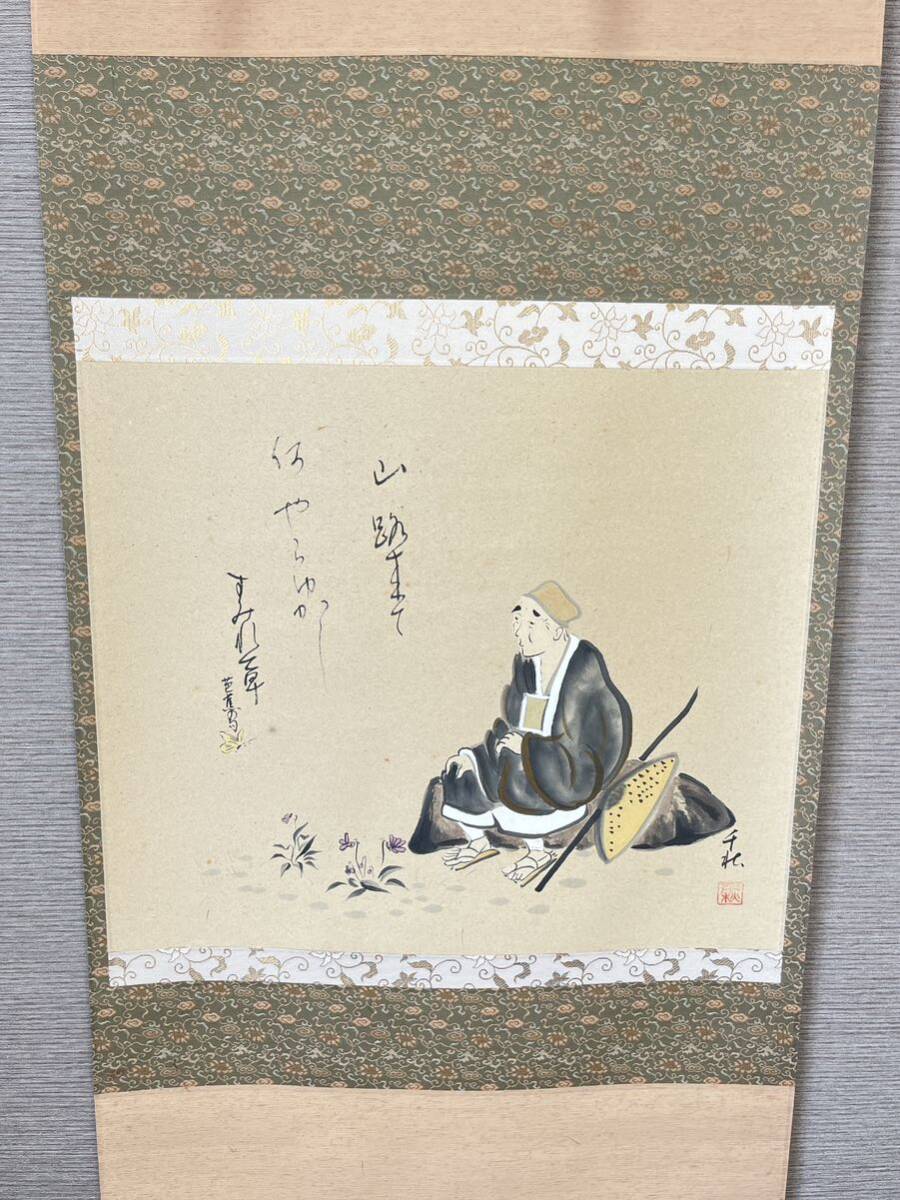 山路来て
何やらゆかし
すみれ草
芭蕉翁
千秋